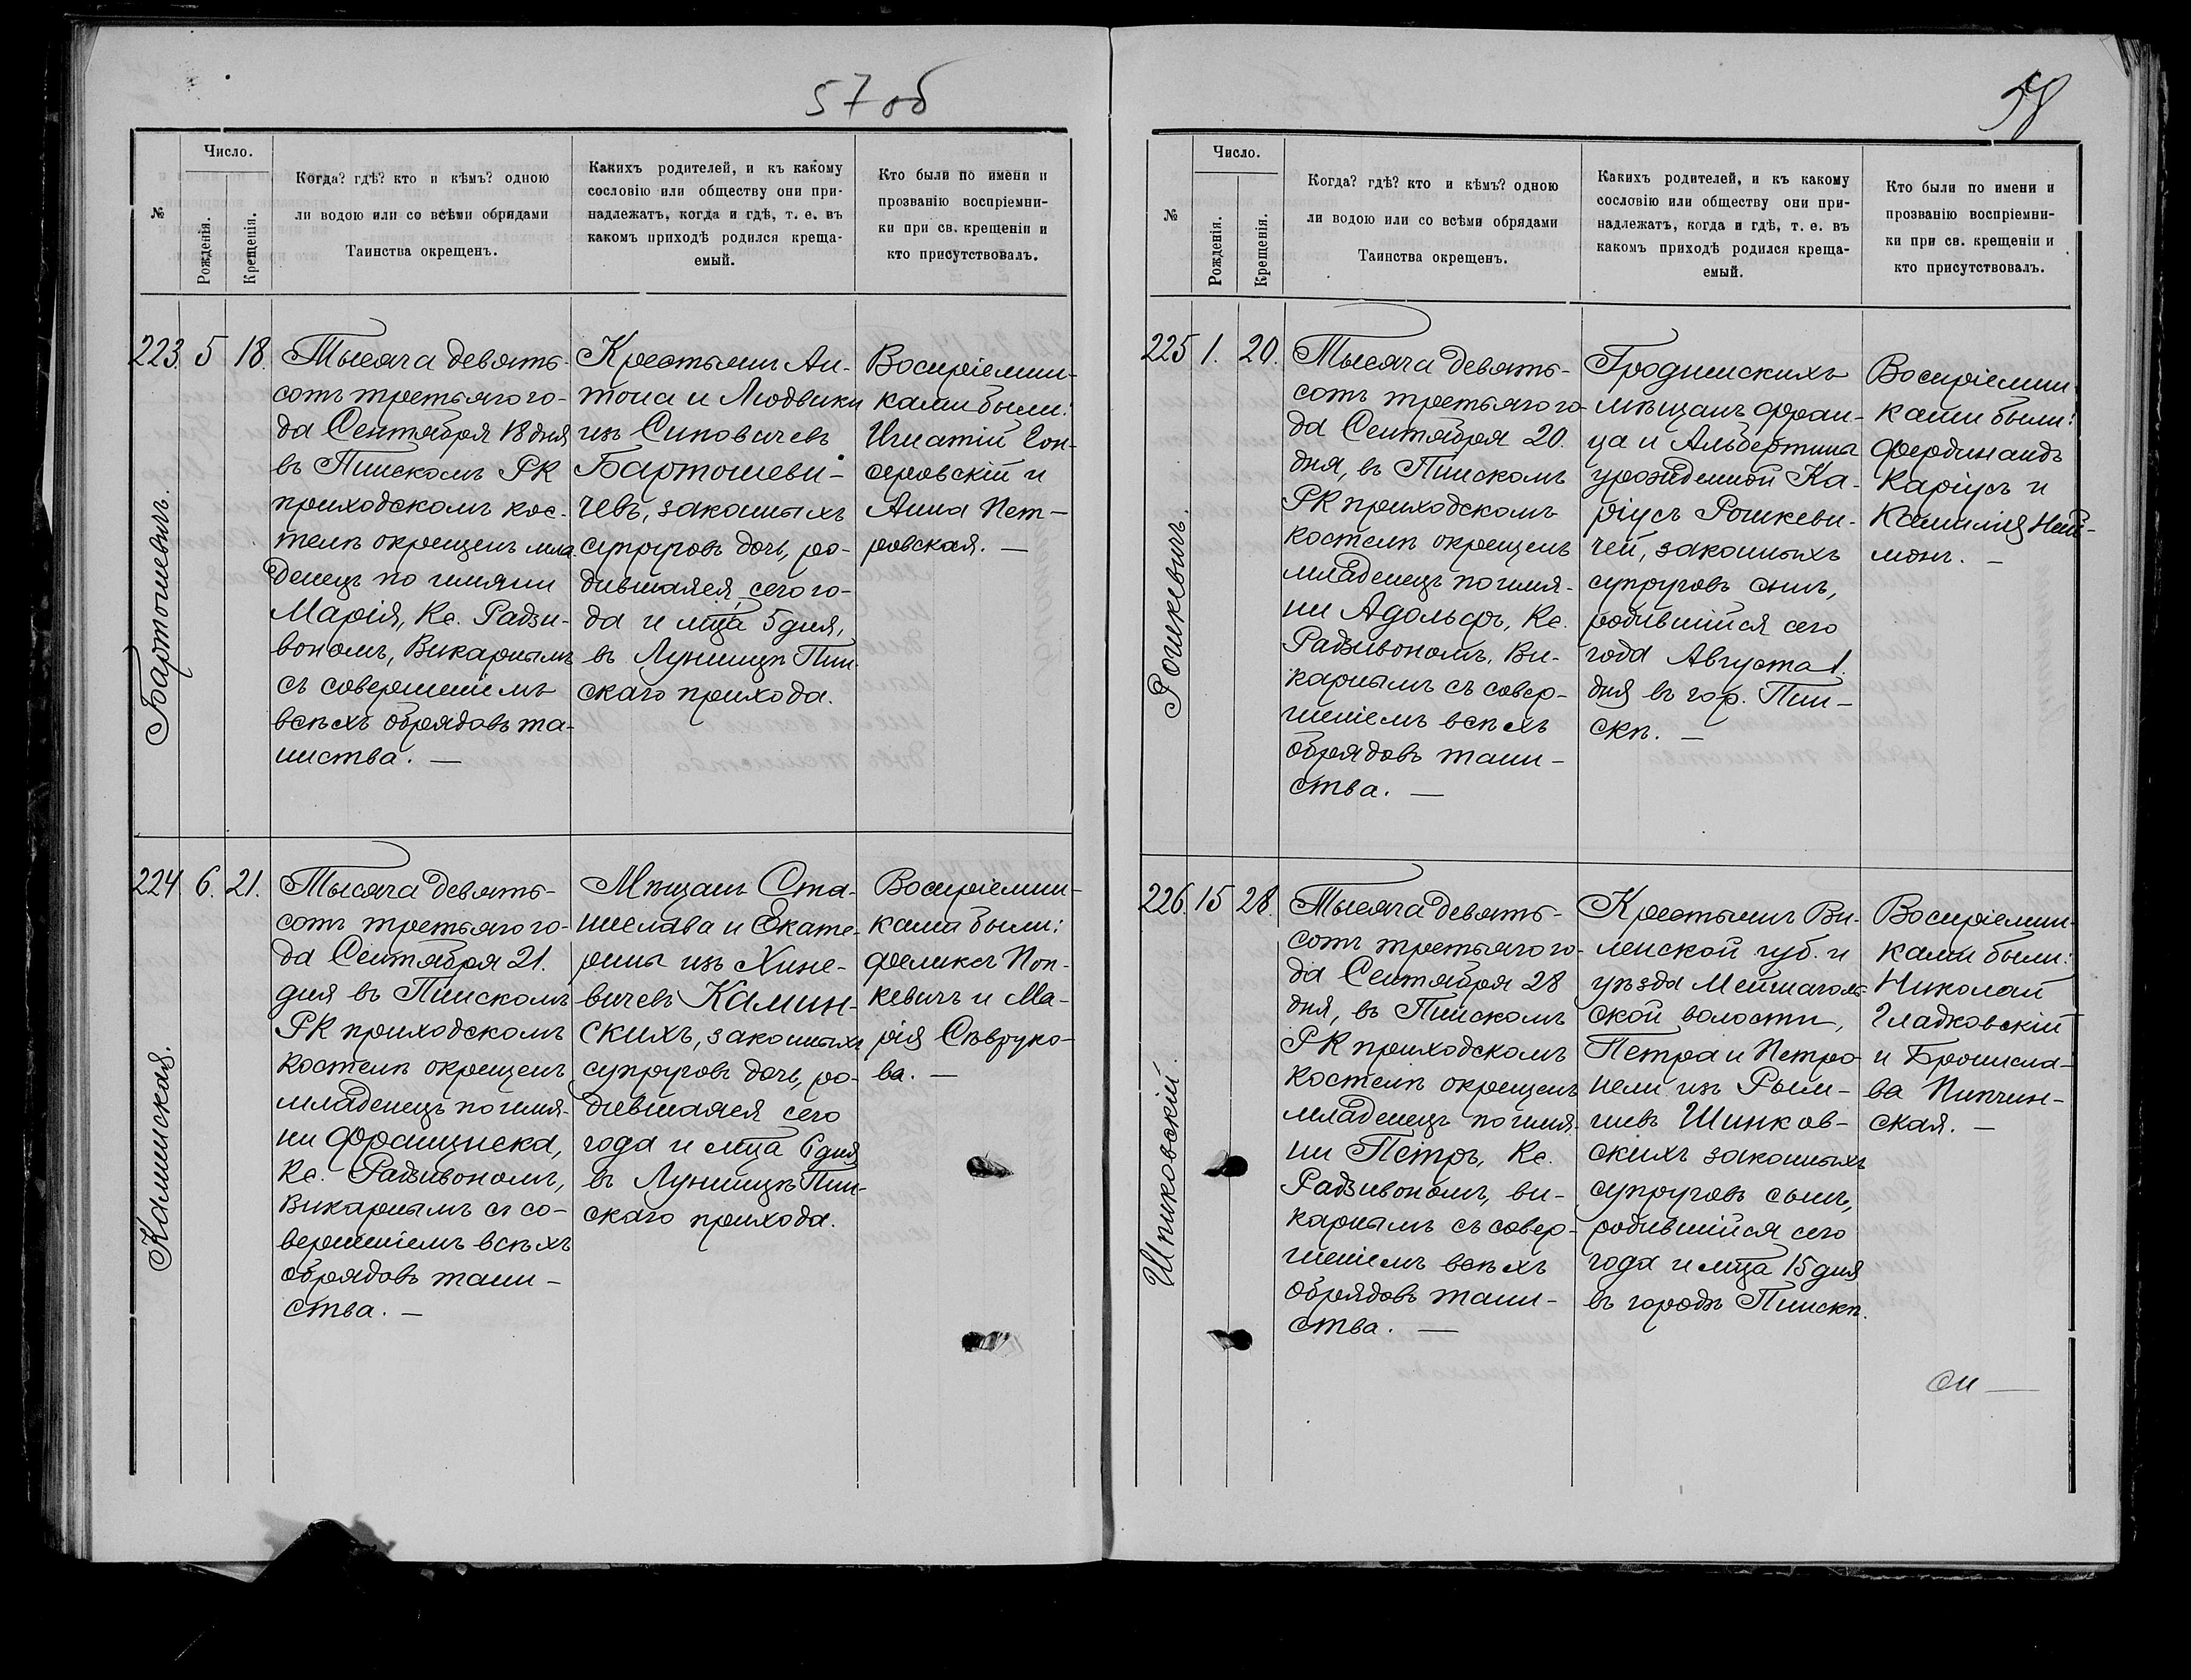 57 об
№
Число.
Рожденія.
Крещенія.
Когда? гдѣ? кто и кѣмъ? одною
ли водою или со всѣми обрядами
Таинства окрещенъ.
Какихъ родителей, и къ какому
сословію или обществу они при-
надлежатъ, когда и гдѣ, т. е. въ
какомъ приходѣ родился креща-
емый.
Кто были по имени и
прозванію воспріемни-
ки при св. крещеніи и
кто присутствовалъ.
223. 5 18.
Бартошевичъ.
Тысяча девять-
сотъ третьяго го-
да Сентября 18 дня
въ Пинскомъ РК
приходскомъ кос-
телѣ окрещенъ мла
денецъ по имяни
Марія, Кс. Радзи-
вономъ, Викарнымъ
съ совершеніемъ
всѣхъ обрядовъ та-
инства. —
Крестьянъ Ан-
тона и Людвики
изъ Синовичевъ
Бартошеви-
чевъ, законныхъ
супруговъ дочь, ро-
дившаяся сего го-
да и мца 5 дня,
въ Лунинцѣ Пин
скаго прихода.
Воспріемни-
ками были:
Игнатій Гон-
серовскій и
Анна Пет-
ровская. —
224. 6. 21.
Каминская.
Тысяча девять-
сотъ третьяго го-
да Сентября 21.
дня въ Пинскомъ
РК приходскомъ
костелѣ окрещенъ
младенецъ по имя-
ни Францишка,
Кс. Радзивономъ,
Викарнымъ съ со-
вершеніемъ всѣхъ
обрядовъ таин-
ства. —
Мѣщанъ Ста-
нислава и Екате-
рины изъ Хине-
вичевъ Камин-
скихъ, законныхъ
супруговъ дочь, ро-
дившаяся сего
года и мца 6 дня
въ Лунинцѣ Пин-
скаго прихода.
Воспріемни-
ками были:
Феликсъ Поп-
кевичъ и Ма-
рія Сѣвруко-
ва. —
58
№
Число.
Рожденія.
Крещенія.
Когда? гдѣ? кто и кѣмъ? одною
ли водою или со всѣми обрядами
Таинства окрещенъ.
Какихъ родителей, и къ какому
сословію или обществу они при-
надлежатъ, когда и гдѣ, т. е. въ
какомъ приходѣ родился креща-
емый.
Кто были по имени и
прозванію воспріемни-
ки при св. крещеніи и
кто присутствовалъ.
225 1. 20.
Рошкевичъ.
Тысяча девять-
сотъ третьяго го-
да Сентября 20.
дня, въ Пинскомъ
РК приходскомъ
костелѣ окрещенъ
младенецъ по имя-
ни Адольфъ, Кс.
Радзивономъ, Ви-
карнымъ съ совер-
шеніемъ всѣхъ
обрядовъ таин-
ства. —
Гродненскихъ
мѣщанъ Фран-
ца и Альбертина
урожденной Ка-
ріусъ Рошкеви-
чей, законныхъ
супруговъ сынъ,
родившійся сего
года Августа 1.
дня въ гор. Пин-
скѣ. —
Воспріемни
ками были:
Фердинандъ
Каріусъ и
Камилія Ней-
монъ. —
226. 15 28.
Шпиковскій.
Тысяча девять-
сотъ третьяго го-
да Сентября 28
дня, въ Пинскомъ
РК приходскомъ
костелѣ окрещенъ
младенецъ по имя
ни Петръ, Кс.
Радзивономъ, ви-
карнымъ съ совер-
шеніемъ всѣхъ
обрядовъ таин-
ства. —
Крестьянъ Ви-
ленской губ. и
уѣзда Мейшаголь-
ской волости,
Петра и Петро-
нели изъ
Шинков-
скихъ законныхъ
супруговъ сынъ,
родившійся сего
года и мца 15 дня
въ городѣ Пинскѣ.
Воспріемни-
ками были:
Николай
Гладковскій
и Бронисла-
ва Пипчин-
ская. —